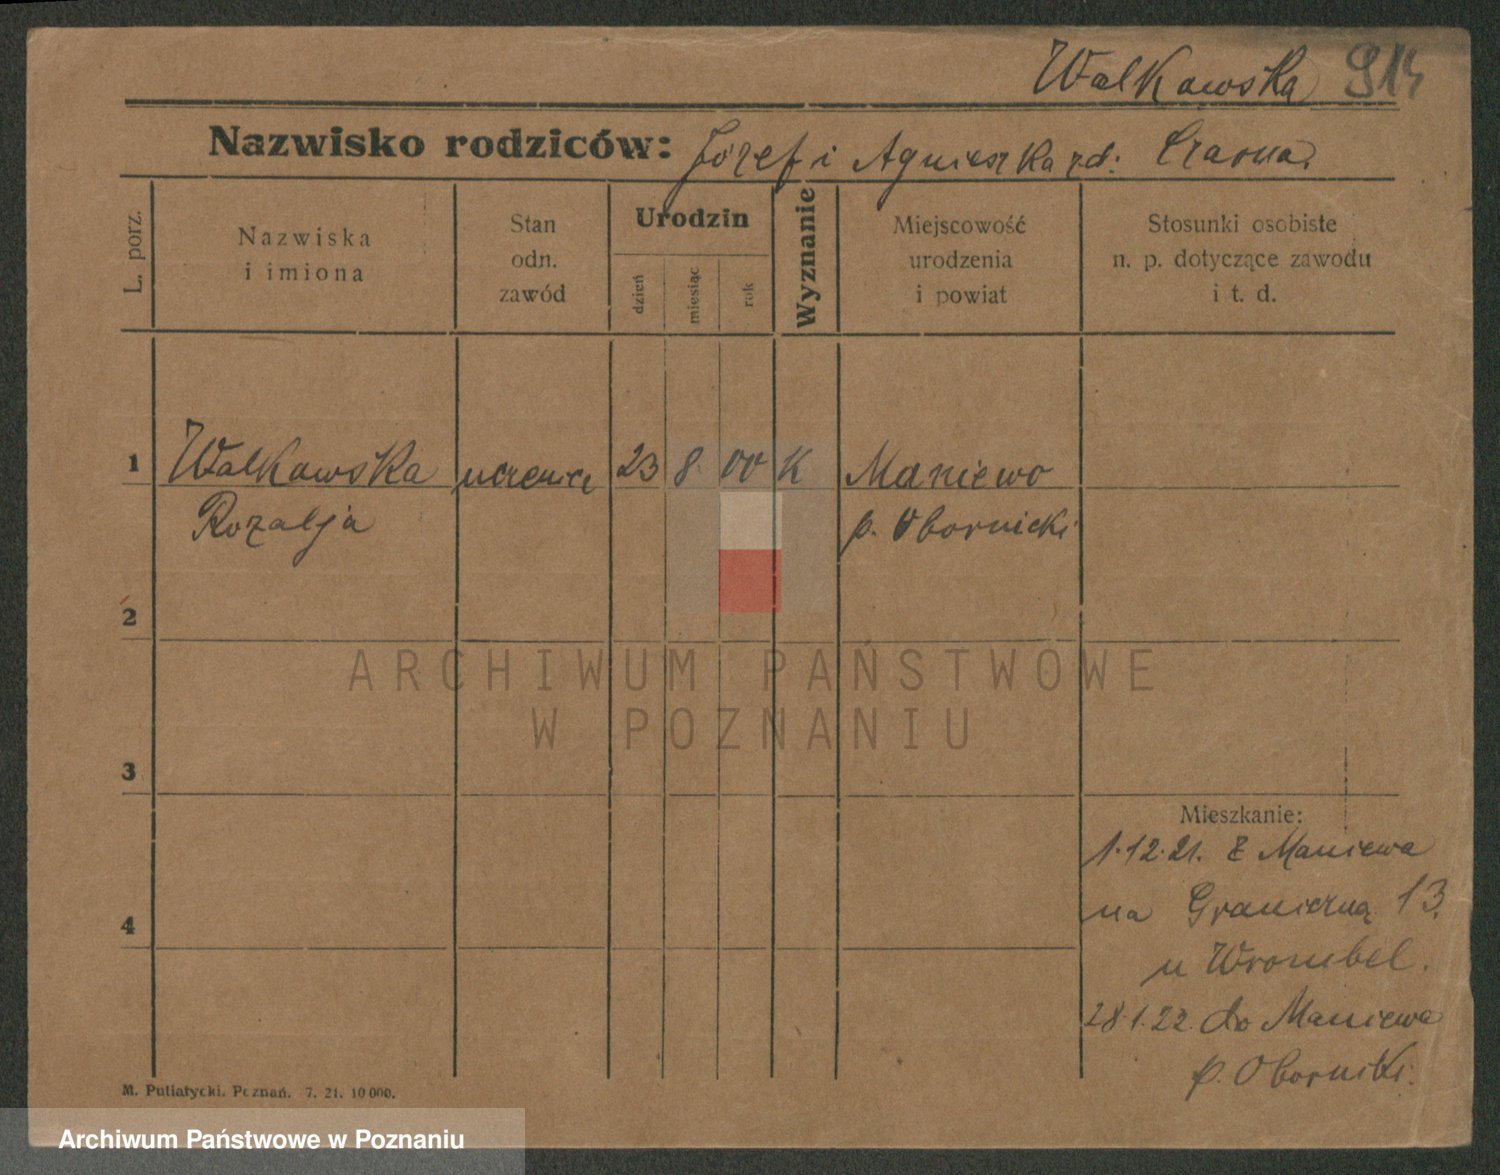 Walkowska 914
Nazwisko rodziców: Józef i Agnieszka zd: Czarna.
L. porz.
Nazwiska
i imiona
Stan
odn.
zawód
Urodzin
dzień
miesiąc
rok
Wyznanie
Miejscowość
urodzenia
i powiat
Stosunki osobiste
n. p. dotyczące zawodu
i t. d.
1 Walkowska uczenica 23 8. 00 K Maniewo
Rozalja p. Obornicki
2
3
4
Mieszkanie:
1.12.21. z Maniewa
na Graniczną 13.
u Wrombel.
28.1.22. do Maniewa
p. Oborniki.
M. Putiatycki. Poznań. 7. 21. 10 000.
ARCHIWUM PAŃSTWOWE
W POZNANIU
Archiwum Państwowe w Poznaniu